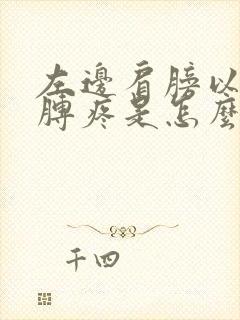 左邊肩膀以
膊疼是怎麼
千四